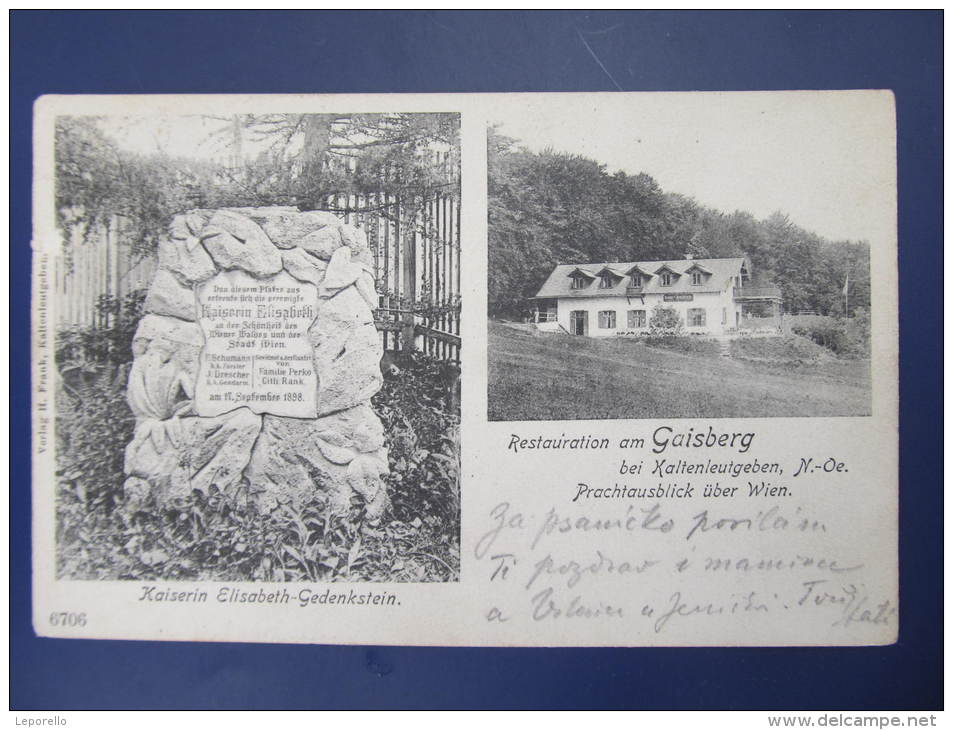 Von diesem Platze aus
erfreute sich die verewigte
Kaiserin Elisabeth
an der Schönheit des
Wiener Waldes und der
Stadt Wien.
F. Schumann
k.k. Förster
J. Drescher
k.k. Gendarm.
Gewidmet u. errichtet
von
Familie Perko
Citli Rank.
am 17. September 1898.
Verlag H. Frank, Kaltenleutgeben.
Kaiserin Elisabeth-Gedenkstein.
6706
Restauration am Gaisberg
bei Kaltenleutgeben, N.-Oe.
Prachtausblick über Wien.
Za psaníčko posílám
Ti pozdrav i mamince
a
Leporello
www.delcampe.net